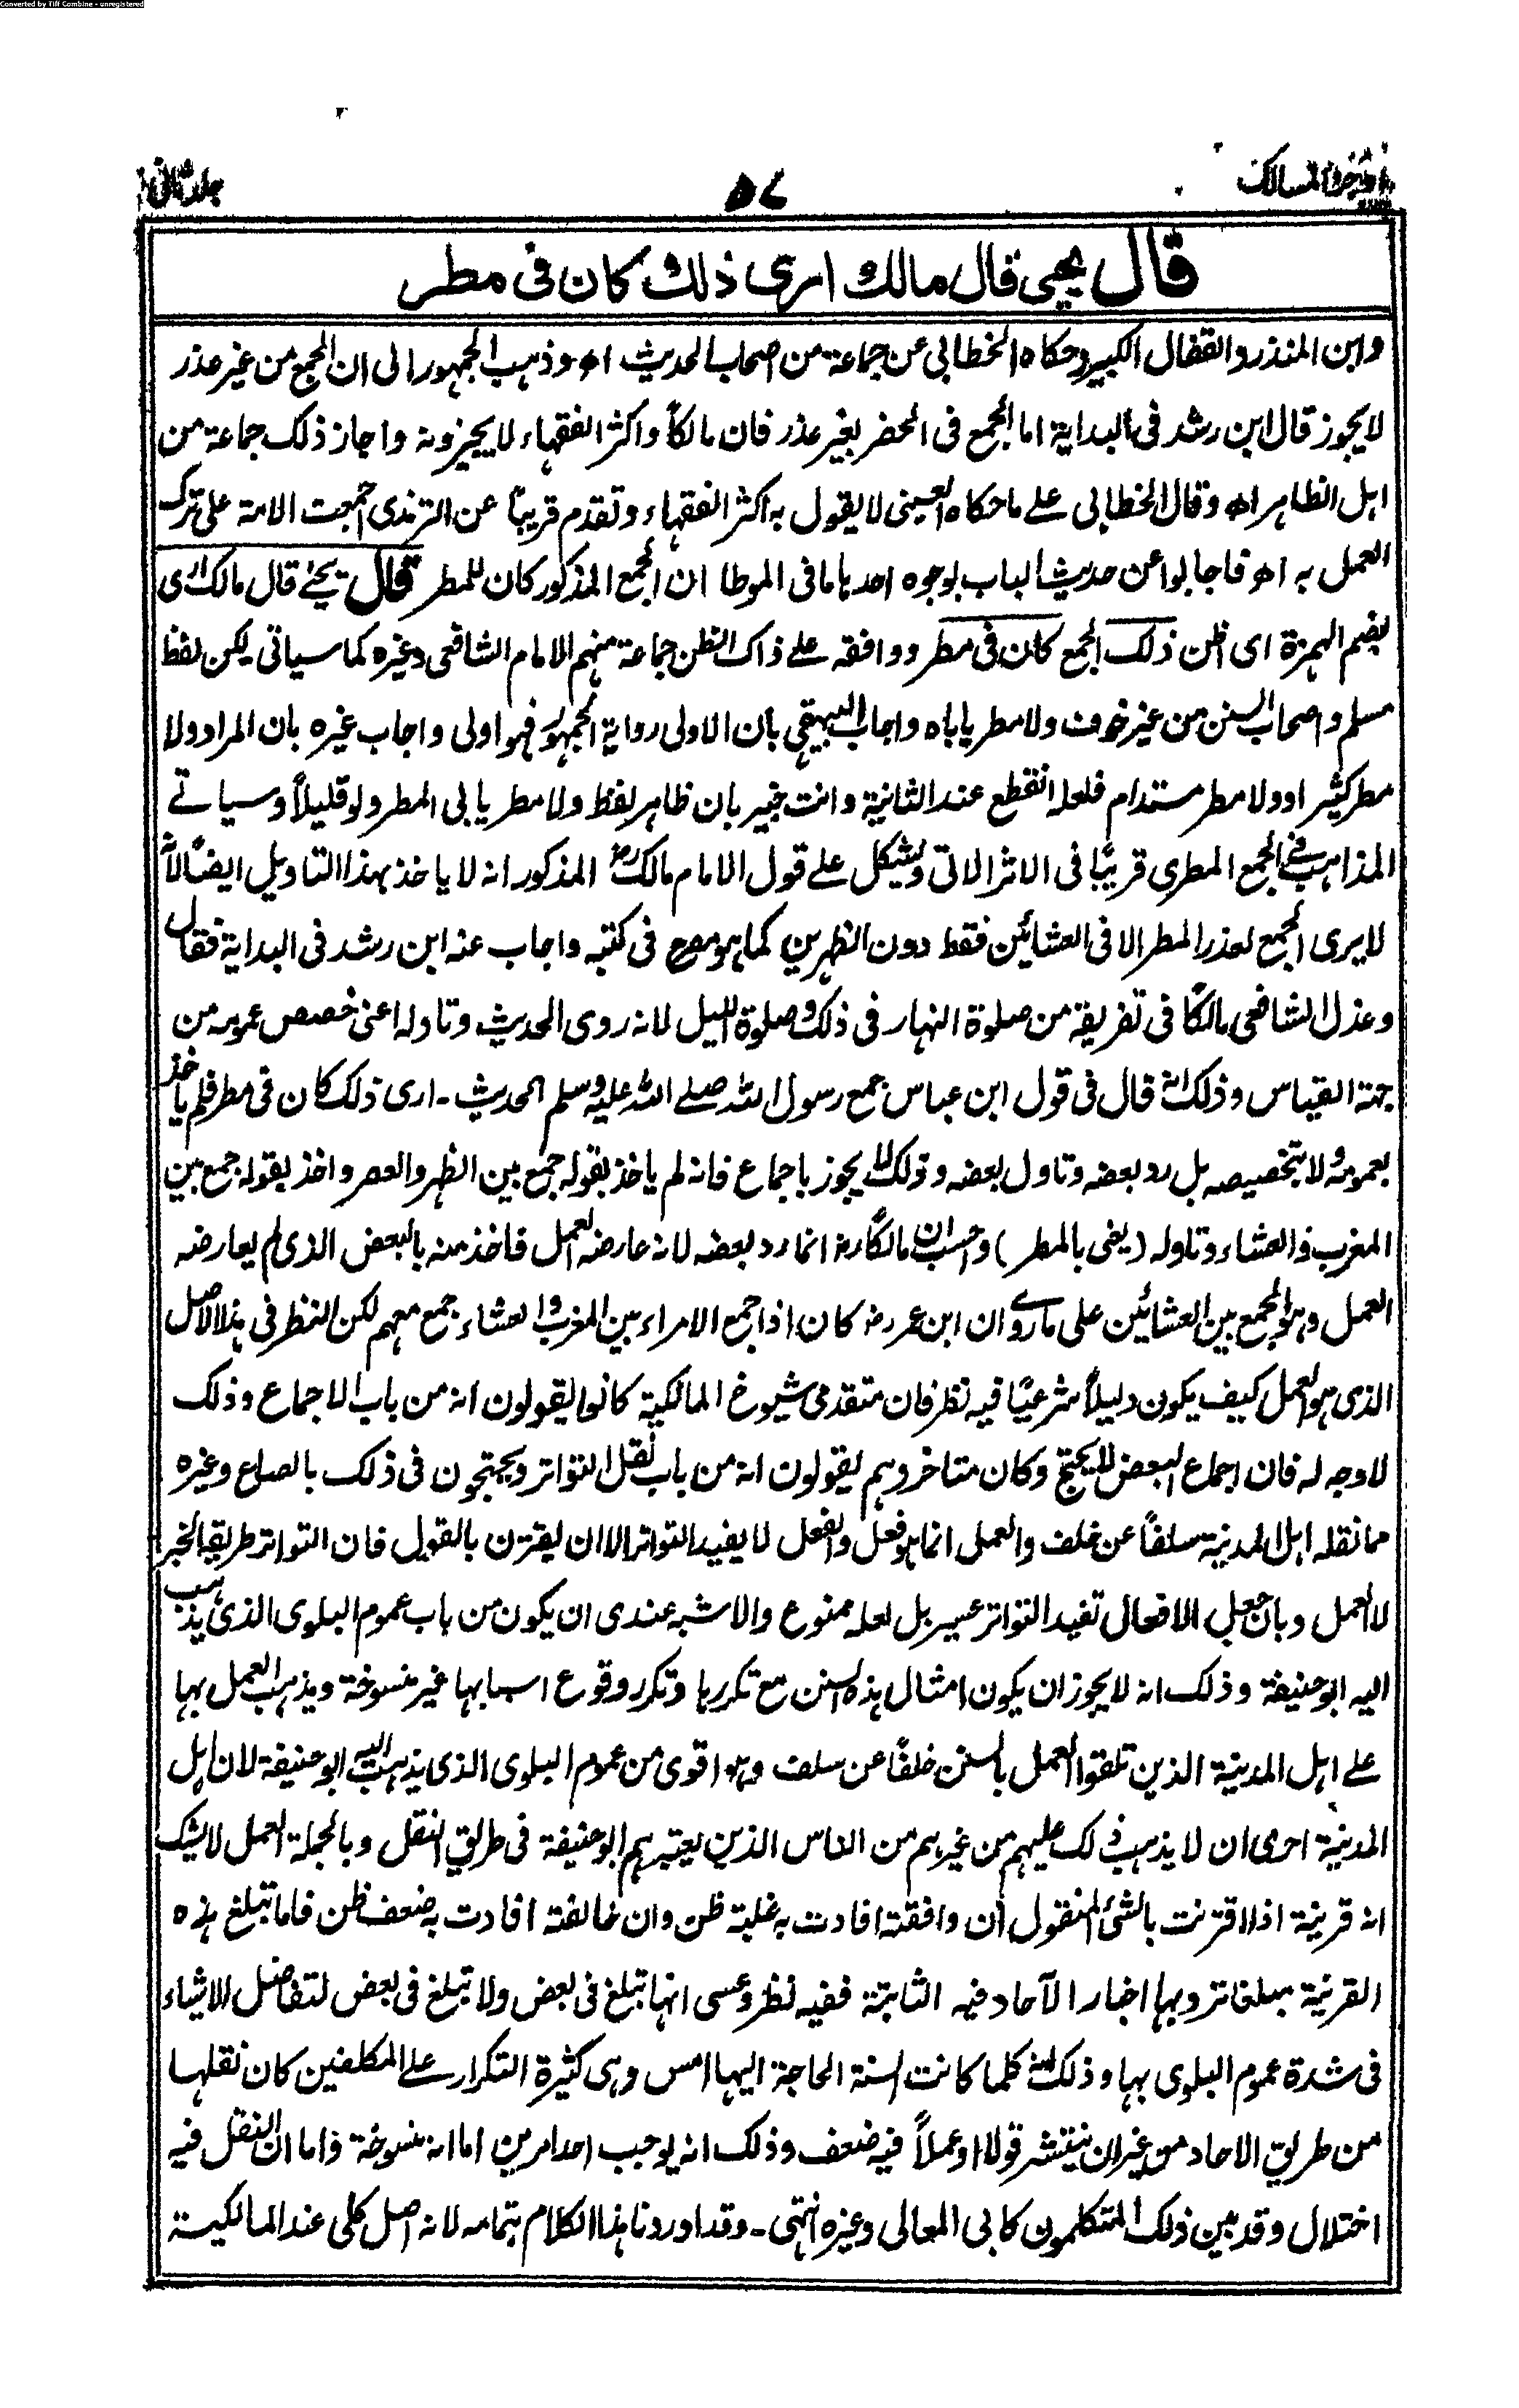 Converted by Tiff Combine - unregistered
اوجز المسالك
٥٧
جلد ثانی
قال يحيى قال مالك ارى ذلك كان فى مطر
وابن المنذر والقفال الكبير وحكاه الخطابى عن جماعة من اصحاب الحديث اه وذهب الجمهور الى ان الجمع من غير عذر
لا يجوز قال ابن رشد فى البداية اما الجمع فى الحضر بغير عذر فان مالكاً واكثر الفقهاء لا يجيزونه واجاز ذلك جماعة من
اهل الظاهر اه وقال الخطابى على ما حكاه العينى لا يقول به اكثر الفقهاء وتقدم قريباً عن الترمذى اجمعت الامة على ترك
العمل به اه فاجابوا عن حديث الباب بوجوه احدها ما فى الموطا ان الجمع المذكور كان للمطر قال يحيى قال مالك ارى
بضم الهمزة اى اظن ذلك الجمع كان فى مطر ووافقه على ذاك الظن جماعة منهم الامام الشافعى وغيره كما سياتى لكن لفظ
مسلم واصحاب السنن من غير خوف ولا مطر ياباه واجاب البيهقى بان الاولى رواية الجمهور فهو اولى واجاب غيره بان المراد ولا
مطر كثير او ولا مطر مستدام فلعله انقطع عند الثانية وانت خبير بان ظاهر لفظ ولا مطر يابى المطر ولو قليلاً وسياتى
المذاهب فى الجمع المطرى قريبًا فى الاثر الاتى ويشكل على قول الامام مالك رح المذكور انه لا ياخذ بهذا التاويل ايضًا لانه
لا يرى الجمع لعذر المطر الا فى العشائين فقط دون الظهرين كما هو مصرح فى كتبه واجاب عنه ابن رشد فى البداية فقال
وعذل الشافعى مالكًا فى تفريقه من صلوة النهار فى ذلك وصلوة الليل لانه روى الحديث وتاوله اعنى خصص عمومه من
جهة القياس وذلك انه قال فى قول ابن عباس جمع رسول الله صلى الله عليه وسلم الحديث - ارى ذلك كان فى مطر فلم ياخذ
بعمومه ولا بتخصيصه بل رد بعضه وتاول بعضه وذلك لا يجوز باجماع فانه لم ياخذ بقوله جمع بين الظهر والعصر واخذ بقوله جمع بين
المغرب والعشاء وتاوله (يعنى بالمطر) واحسب ان مالكًا رح انما رد بعضه لانه عارضه العمل فاخذ منه بالبعض الذى لم يعارضه
العمل وهو الجمع بين العشائين على ما روى ان ابن عمر رض كان اذا جمع الامراء بين المغرب والعشاء جمع معهم لكن النظر فى هذا الاصل
الذى هو العمل كيف يكون دليلاً شرعيًا فيه نظر فان متقدمى شيوخ المالكية كانوا يقولون انه من باب الاجماع وذلك
لا وجه له فان اجماع البعض لا يحتج وكان متاخروهم يقولون انه من باب نقل التواتر ويحتجون فى ذلك بالصاع وغيره
مما نقله اهل المدينة سلفاً عن خلف والعمل انما هو فعل والفعل لا يفيد التواتر الا ان يقترن بالقول فان التواتر طريقه الخبر
لا العمل وبان جعل الافعال تفيد التواتر عسير بل لعله ممنوع والاشبه عندى ان يكون من باب عموم البلوى الذى يذهب
اليه ابو حنيفة وذلك انه لا يجوز ان يكون امثال هذه السنن مع تكررها وتكرر وقوع اسبابها غير منسوخة ويذهب العمل بها
على اهل المدينة الذين تلقوا العمل بالسنن خلفًا عن سلف وهو اقوى من عموم البلوى الذى يذهب اليه ابو حنيفة لان اهل
المدينة احرى ان لا يذهب ذلك عليهم من غيرهم من الناس الذين يعتبرهم ابو حنيفة فى طريق النقل وبالجملة العمل لا يشك
انه قرينة اذا اقترنت بالشئ المنقول ان وافقته افادت به غلبة ظن وان خالفته افادت به ضعف ظن فاما تبلغ هذه
القرينة مبلغا ترد بها اخبار الآحاد فيه الثابتة ففيه نظر وعسى انها تبلغ فى بعض ولا تبلغ فى بعض لتفاضل الاشياء
فى شدة عموم البلوى بها وذلك انه كلما كانت السنة الحاجة اليها امس وهى كثيرة التكرار على المكلفين كان نقلها
من طريق الاحاد من غير ان ينتشر قولا او عملاً فيه ضعف وذلك انه يوجب احد امرين اما انه منسوخة واما ان النقل فيه
اختلال وقد بين ذلك المتكلمون كابى المعالى وغيره انتهى - وقد اوردنا هذا الكلام بتمامه لانه اصل كلى عند المالكية